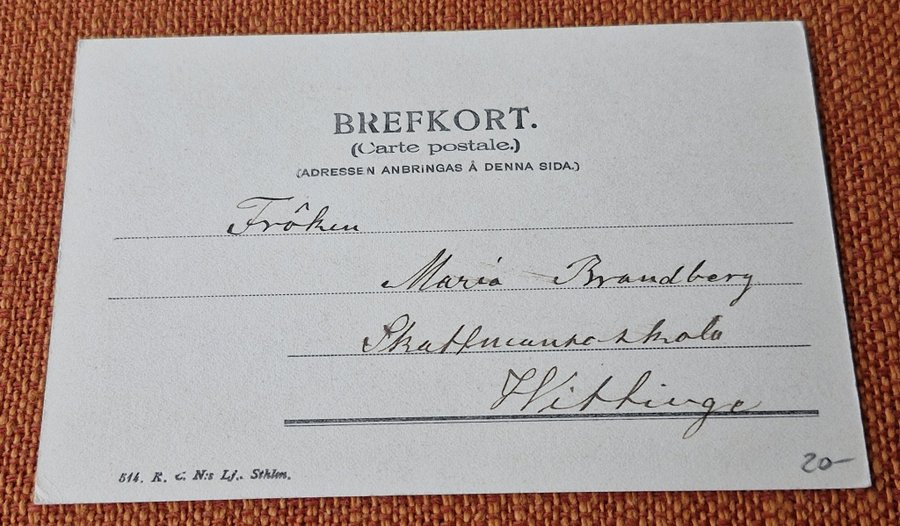 BREFKORT.
(Carte postale.)
(ADRESSEN ANBRINGAS Å DENNA SIDA.)
Fröken
Maria Brandberg
Skattmansö skola
Wittinge
614. K. C. N:s Lj., Sthlm.
20-